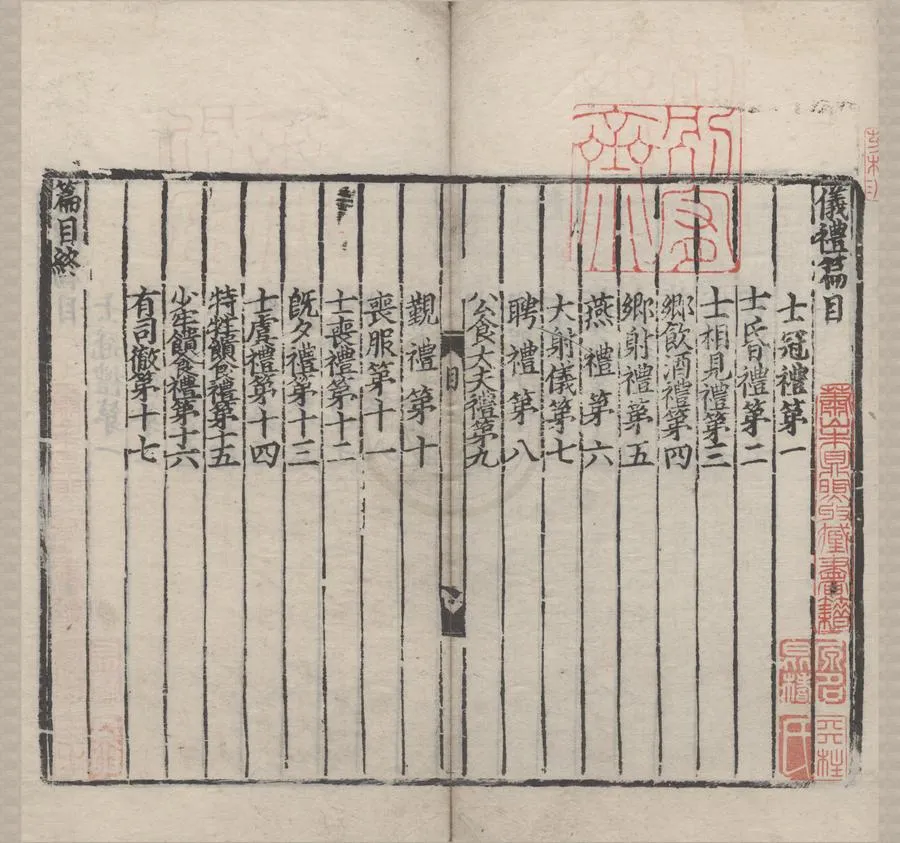 儀禮篇目
士冠禮第一
士昏禮第二
士相見禮第三
鄉飲酒禮第四
鄉射禮第五
燕禮第六
大射儀第七
聘禮第八
公食大夫禮第九
目
覲禮第十
喪服第十一
士喪禮第十二
旣夕禮第十三
士虞禮第十四
特牲饋食禮第十五
少牢饋食禮第十六
有司徹第十七
篇目終